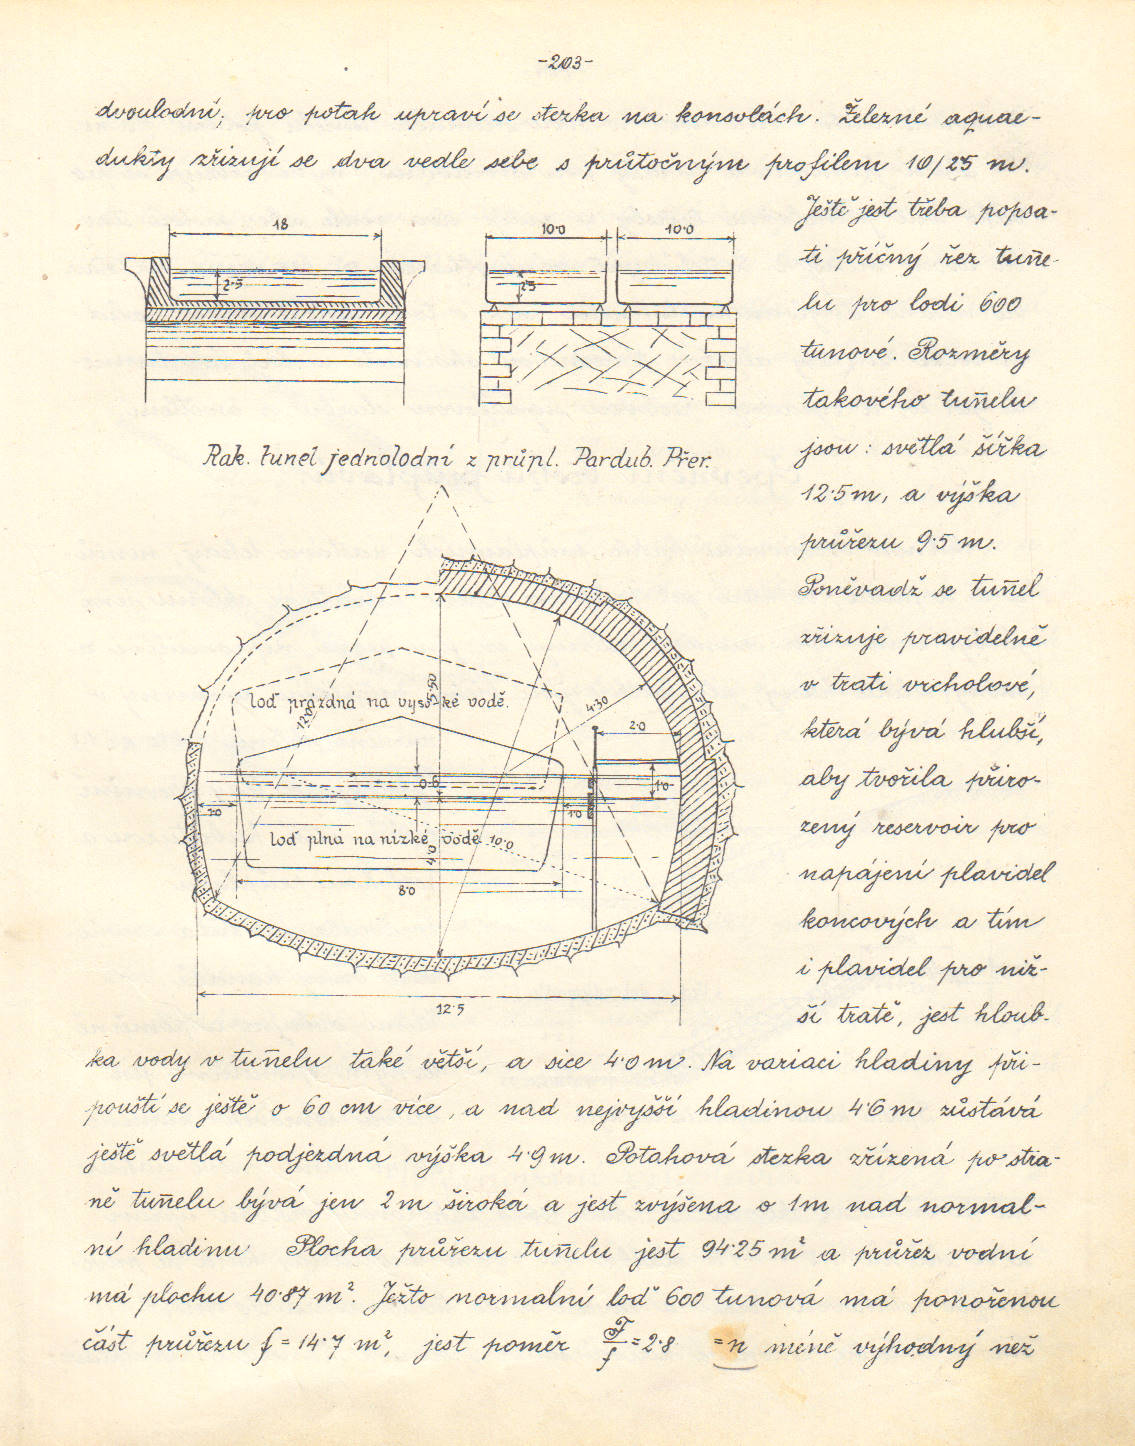 -203-
dvoulodní; pro potah upraví se stezka na konsolách. Železné aquae-
dukty zřizují se dva vedle sebe s průtočným profilem 10/25 m.
Ještě jest třeba popsa-
ti příčný řez tun̄e-
lu pro lodi 600
tunové. Rozměry
takového tun̄elu
jsou: světlá šířka
12·5 m, a výška
průřezu 9·5 m.
Poněvadž se tun̄el
zřizuje pravidelně
v trati vrcholové,
která bývá hlubší,
aby tvořila přiro-
zený reservoir pro
napájení plavidel
koncových a tím
i plavidel pro niž-
ší tratě, jest hloub-
ka vody v tun̄elu také větší, a sice 4·0 m. Na variaci hladiny při-
pouští se ještě o 60 cm více, a nad nejvyšší hladinou 4·6 m zůstává
ještě světlá podjezdná výška 4·9 m. Potahová stezka zřízená po stra-
ně tun̄elu bývá jen 2 m široká a jest zvýšena o 1 m nad normal-
ní hladinu Plocha průřezu tun̄elu jest 94·25 m² a průřez vodní
má plochu 40·87 m². Ježto normalní loď 600 tunová má ponořenou
část průřezu f = 14·7 m², jest poměr F/f = 2·8 = n méně výhodný než
18
2·5
10·0
10·0
25
Rak. tunel jednolodní z průpl. Pardub. Přer.
loď prázdná na vysoké vodě.
12·0
5·50
4·30
2·0
0·6
1·0
1·0
1·0
loď plná na nízké vodě
10·0
4·0
8·0
12·5